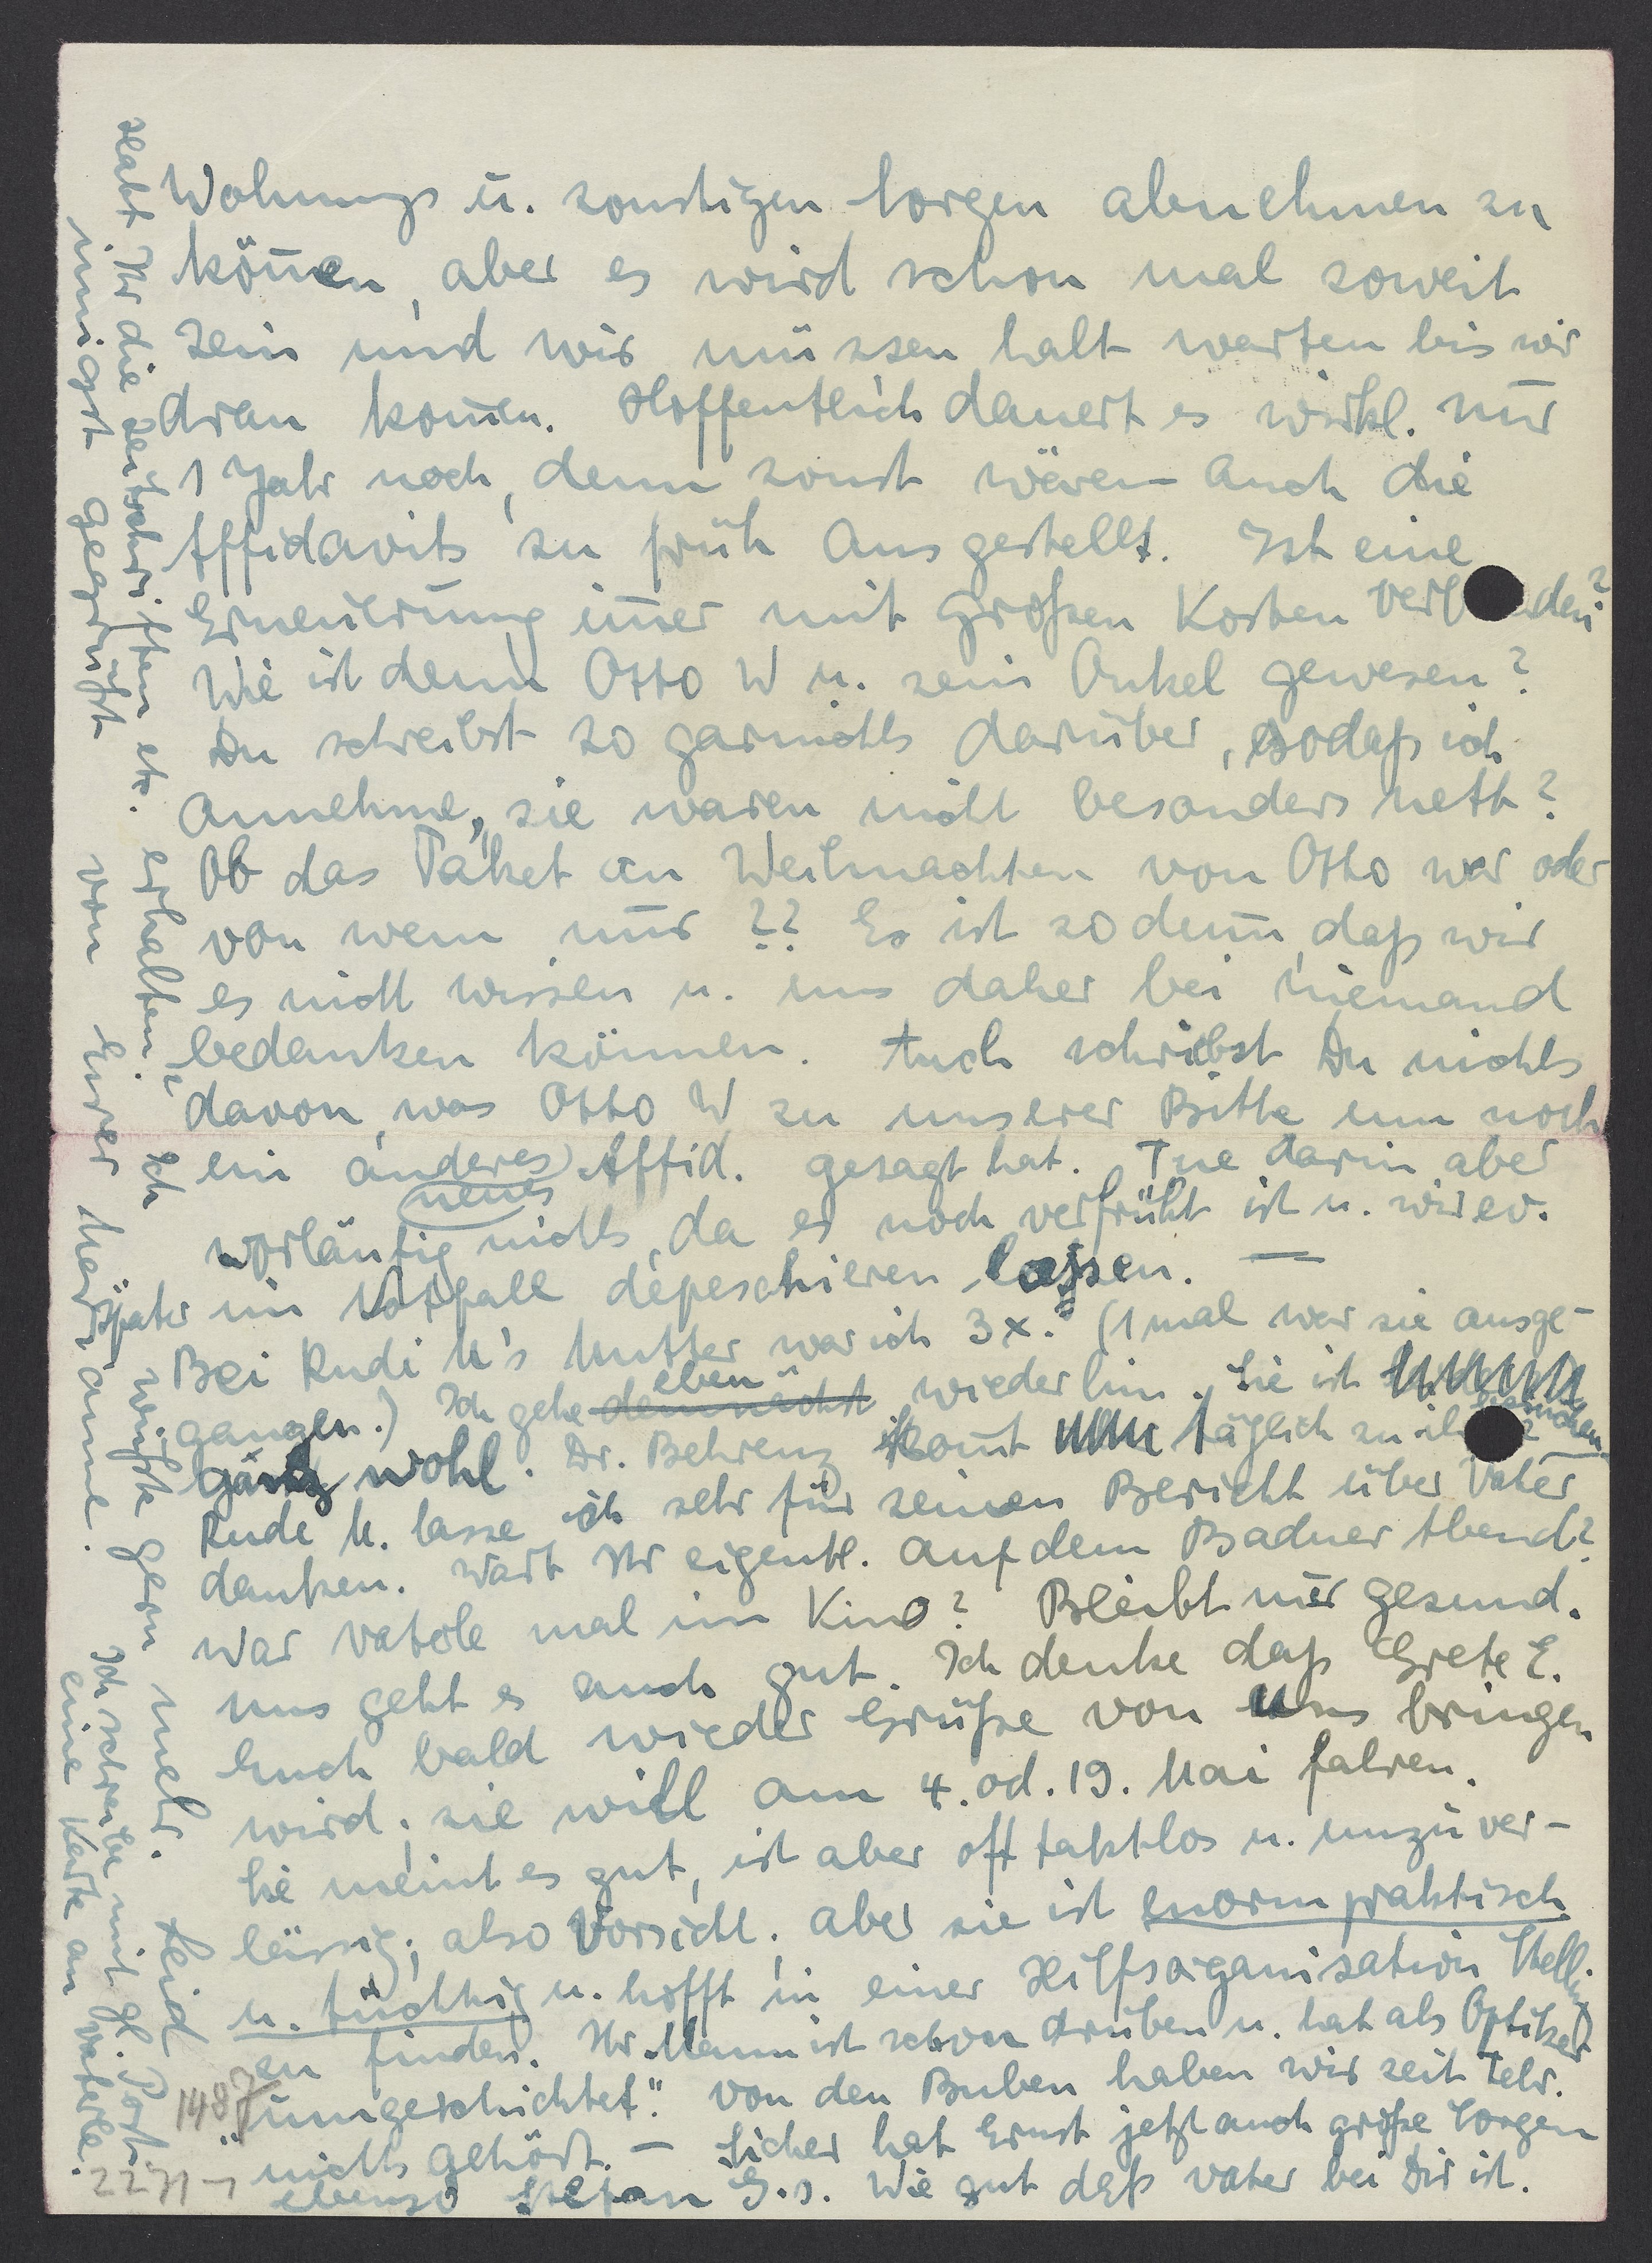 Wohnungs u. sonstigen Sorgen abnehmen zu
können, aber es wird schon mal soweit
sein und wir müssen halt warten bis wir
dran komen. Hoffentlich dauert es wirkl. nur
1 Jahr noch, denn sonst wären auch die
Affidavits zu früh ausgestellt. Ist eine
Erneuerung imer mit großen Kosten verb den?
Wie ist denn Otto W u. sein Onkel gewesen?
Du schreibst so garnichts darüber, sodaß ich
annehme, sie waren nicht besonders nett?
Ob das Paket an Weihnachten von Otto war oder
von wem nur ?? Es ist so dum, daß wir
es nicht wissen u. uns daher bei niemand
bedanken können. Auch schreibst Du nichts
davon, was Otto W zu unserer Bitte um noch
ein anderes Affid. gesagt hat. Tue darin aber
neues
vorläufig nichts, da es noch verfrüht ist u. wir ev.
später im Notfall depeschieren lassen. —
Bei Rudi M's Mutter war ich 3x. (1 mal war sie ausge-
gangen.) Ich gehe demnächst eben wieder hin. Sie ist
ganz wohl. Dr. Behrenz komt täglich zu ih
Rudi M. lasse ich sehr für seinen Bericht über Vater
danken. Wart Ihr eigentl. auf dem Badner Abend?
War Vaterle mal im Kino? Bleibt nur gesund.
Uns geht es auch gut. Ich denke daß Grete E.
Euch bald wieder Grüße von uns bringen
wird; sie will am 4. od. 19. Mai fahren.
Sie meint es gut, ist aber oft taktlos u. unzuver-
lässig; also Vorsicht; aber sie ist enorm praktisch
u. tüchtig u. hofft in einer Hilfsorganisation Stellung
zu finden. Ihr Mann ist schon drüben u. hat als Optiker
"umgeschichtet." Von den Buben haben wir seit Febr.
nichts gehört. — Sicher hat Ernst jetzt auch große Sorgen
ebenso Stefan G.s. Wie gut daß Vater bei Dir ist.
Habt Ihr die Zeitschriften etc. erhalten? Ich wüßte gern mehr. Seid
innigst gegrüßt von Eurer Marianne.
Ich schreibe mit gl. Post
eine Karte an Vaterle.
1487
2271-1